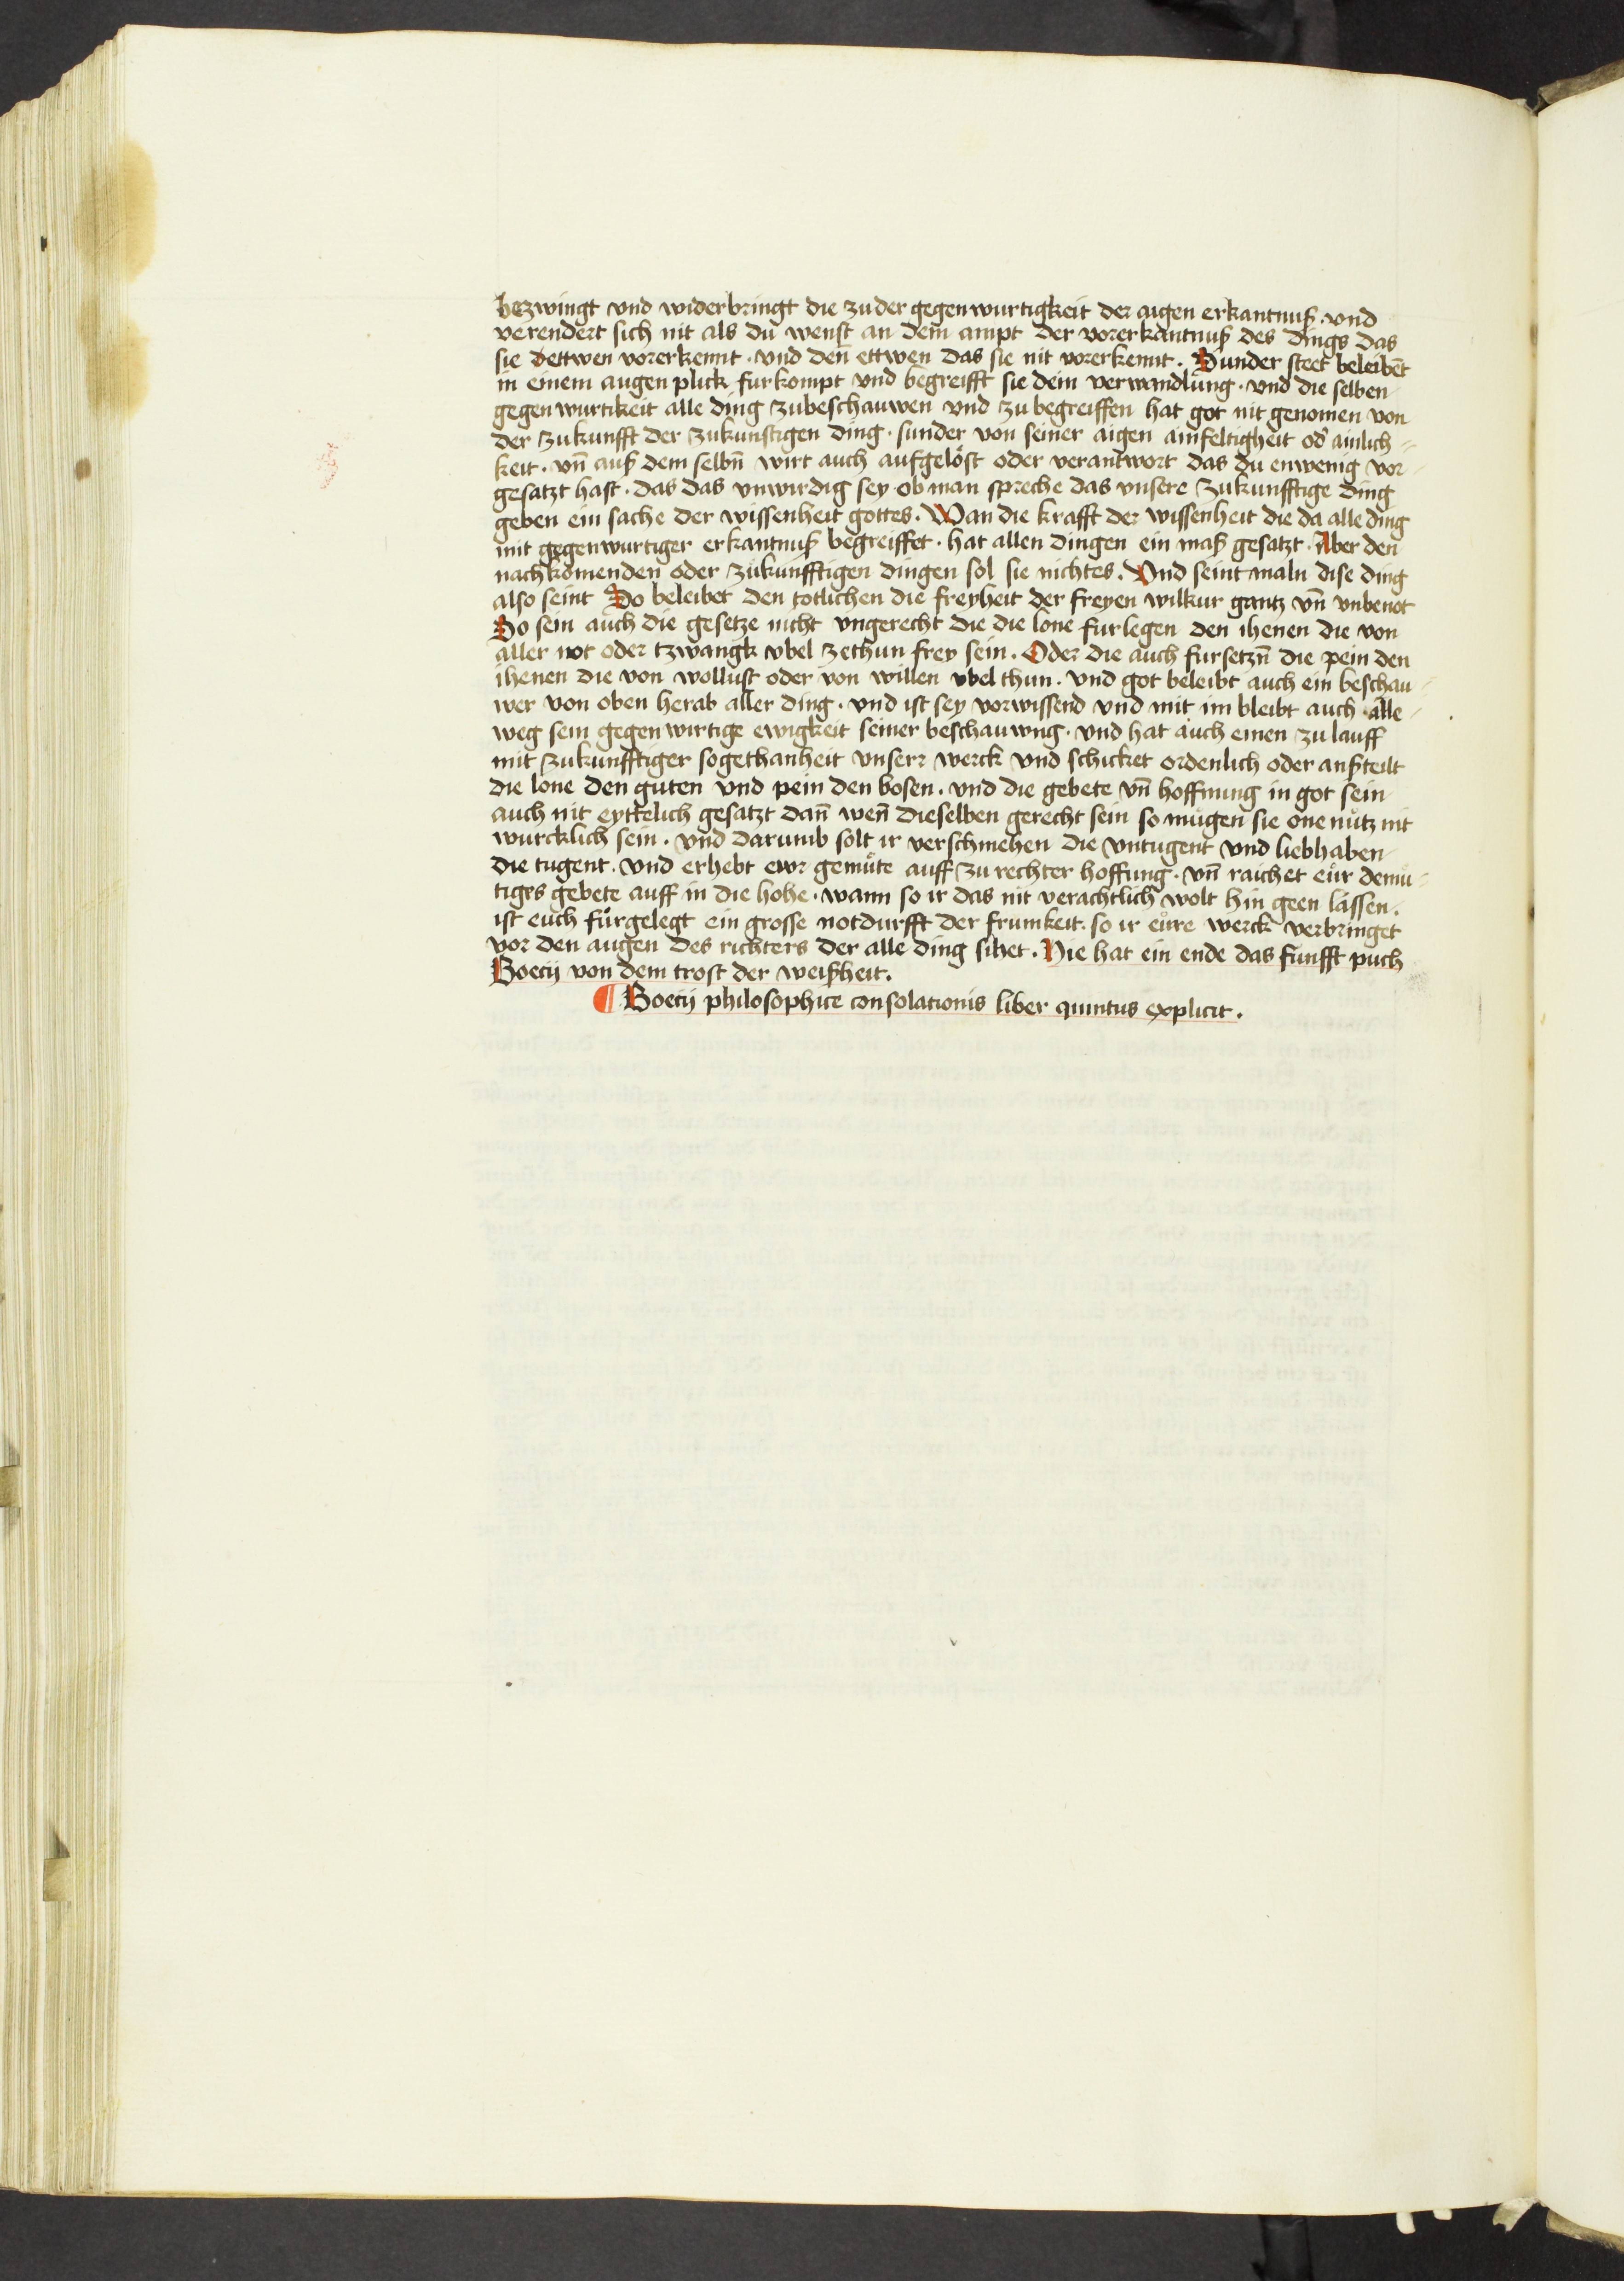 bezwingt vnd widerbringt die zu der gegenwurtigkeit der aigen erkantnuß. vnd
verendert sich nit als du wenst an dem ampt der vorerkantnuß des dings das
sie dettwen vorerkennt. vnd den̄ ettwen das sie nit vorerkennt. Sunder steet beleibēt
in einem augenplick furkompt vnd begreifft sie dein verwandlung. vnd die selben
gegenwurtikeit alle ding zubeschauwen vnd zu begreiffen hat got nit genomen von
der zukunfft der zukunftigen ding. sunder von seiner aigen ainfeltigheit od' ainlich-
keit. vn̄ auß dem selbn̄ wirt auch aufgelöst oder verantwort das du enwenig vor-
gesatzt hast. das das vnwirdig sey ob man spreche das vnsere zukunfftige ding
geben ein sache der wissenheit gottes. Wan die krafft der wissenheit die da alle ding
mit gegenwurtiger erkantnuß begreiffet. hat allen dingen ein maß gesatzt. Aber den
nachkomenden oder zukunfftigen dingen sol sie nichtes. Vnd seint maln dise ding
also seint So beleibet den totlichen die freyheit der freyen wilkur gantz vn̄ vnbenot
So sein auch die gesetze nicht vngerecht die die lone furlegen den ihenen die von
aller not oder tzwangk vbel zethun frey sein. Oder die auch fursetzn̄ die pein den
ihenen die von wollust oder von willen vbel thun. vnd got beleibt auch ein beschau-
wer von oben herab aller ding. vnd ist sey vorwissend vnd mit im bleibt auch alle-
weg sein gegenwirtige ewigkeit seiner beschauwng. vnd hat auch einen zulauff
mit zukunfftiger sogethanheit vnserr werck vnd schicket ordenlich oder außteilt
die lone den guten vnd pein den bosen. vnd die gebete vn̄ hoffnung in got sein
auch nit eyttelich gesatzt dan̄ wen̄ dieselben gerecht sein so mugen sie one nutz nit
wurcklich sein. vnd darumb solt ir verschmehen die vntugent vnd liebhaben
die tugent. vnd erhebt ewr gemüte auff zu rechter hoffung. vn̄ raichet eür demu-
tiges gebete auff in die hohe. wann so ir das nit verachtlich wolt hin geen lassen.
ist euch fürgelegt ein grosse notdurfft der frumkeit. so ir eüre werck verbringet
vor den augen des richters der alle ding sihet. Hie hat ein ende das funfft puch
Boecij von dem trost der weißheit.
¶ Boecij philosophice consolationis liber quintus explicit.